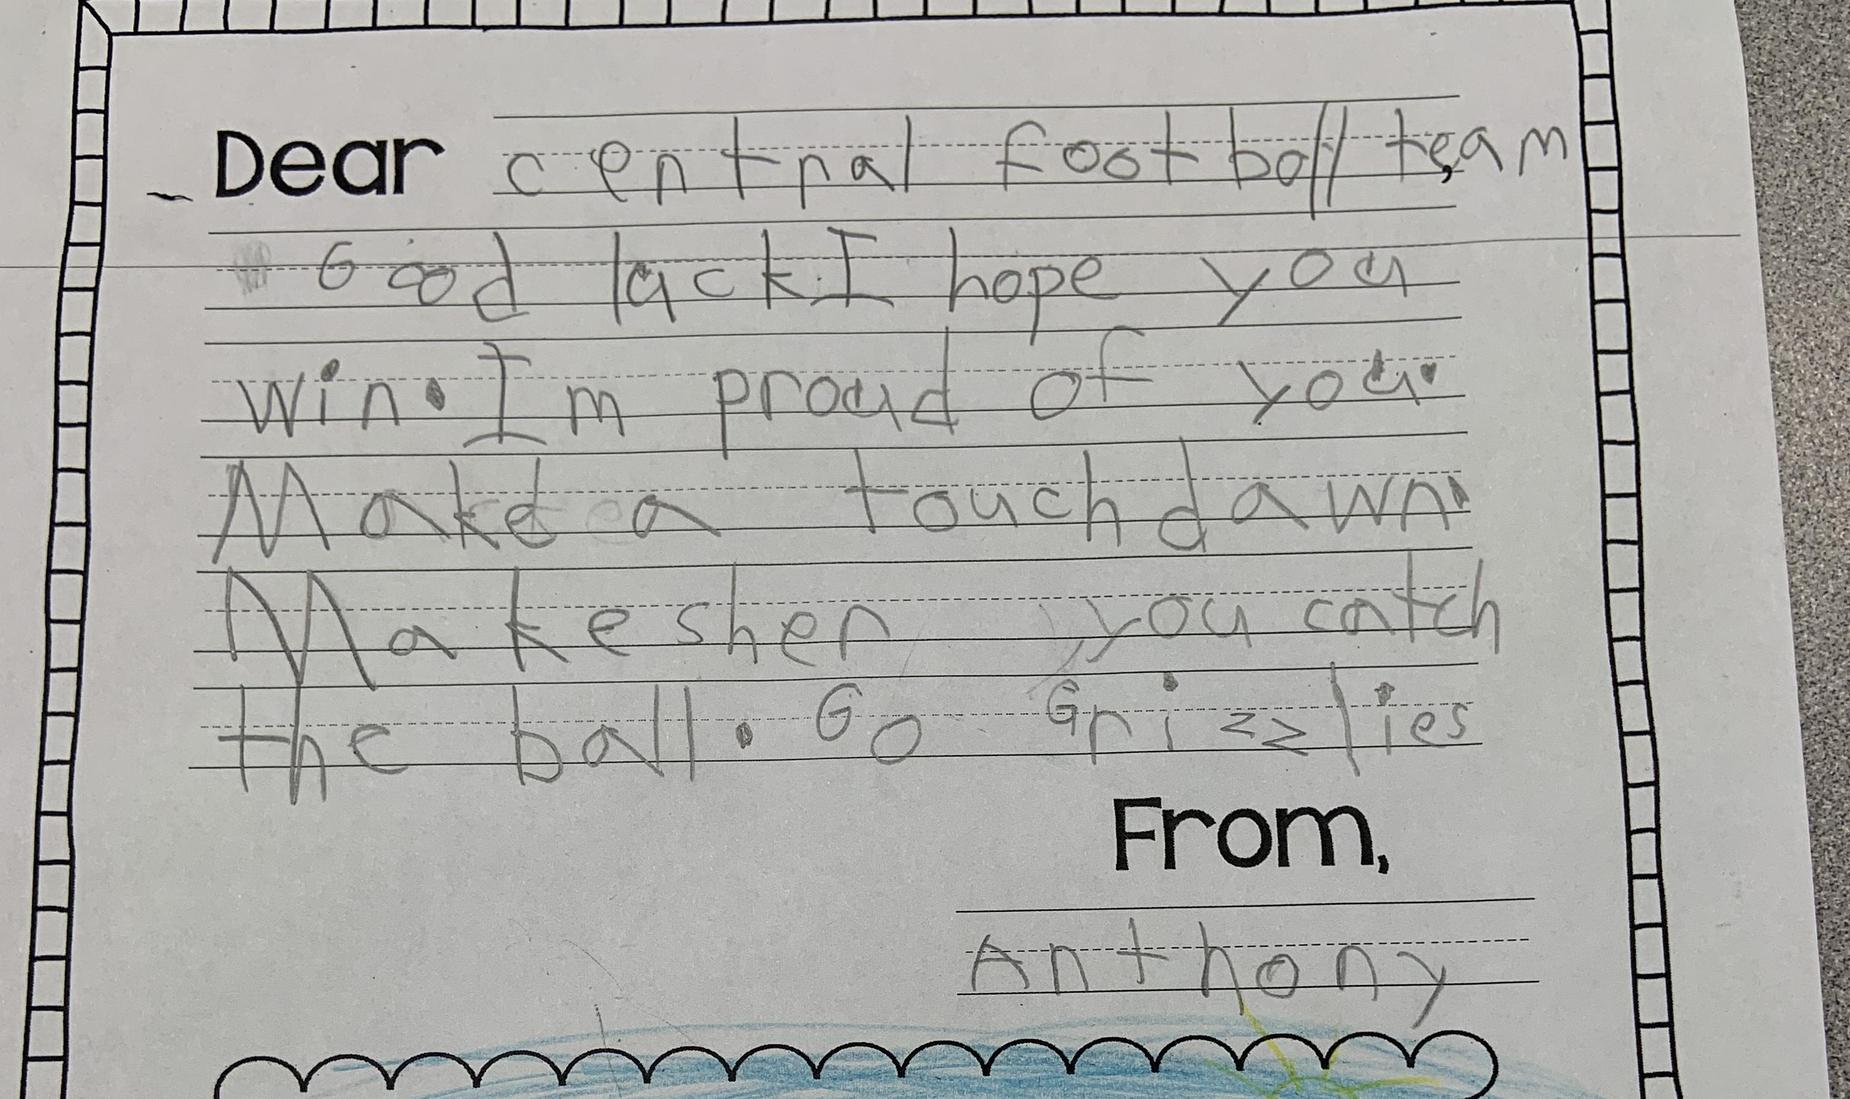 Dear central football team,
Good luck. I hope you
win. Im proud of you.
Make a touch dawn.
Make sher you catch
the ball. Go Grizzlies
From,
Anthony